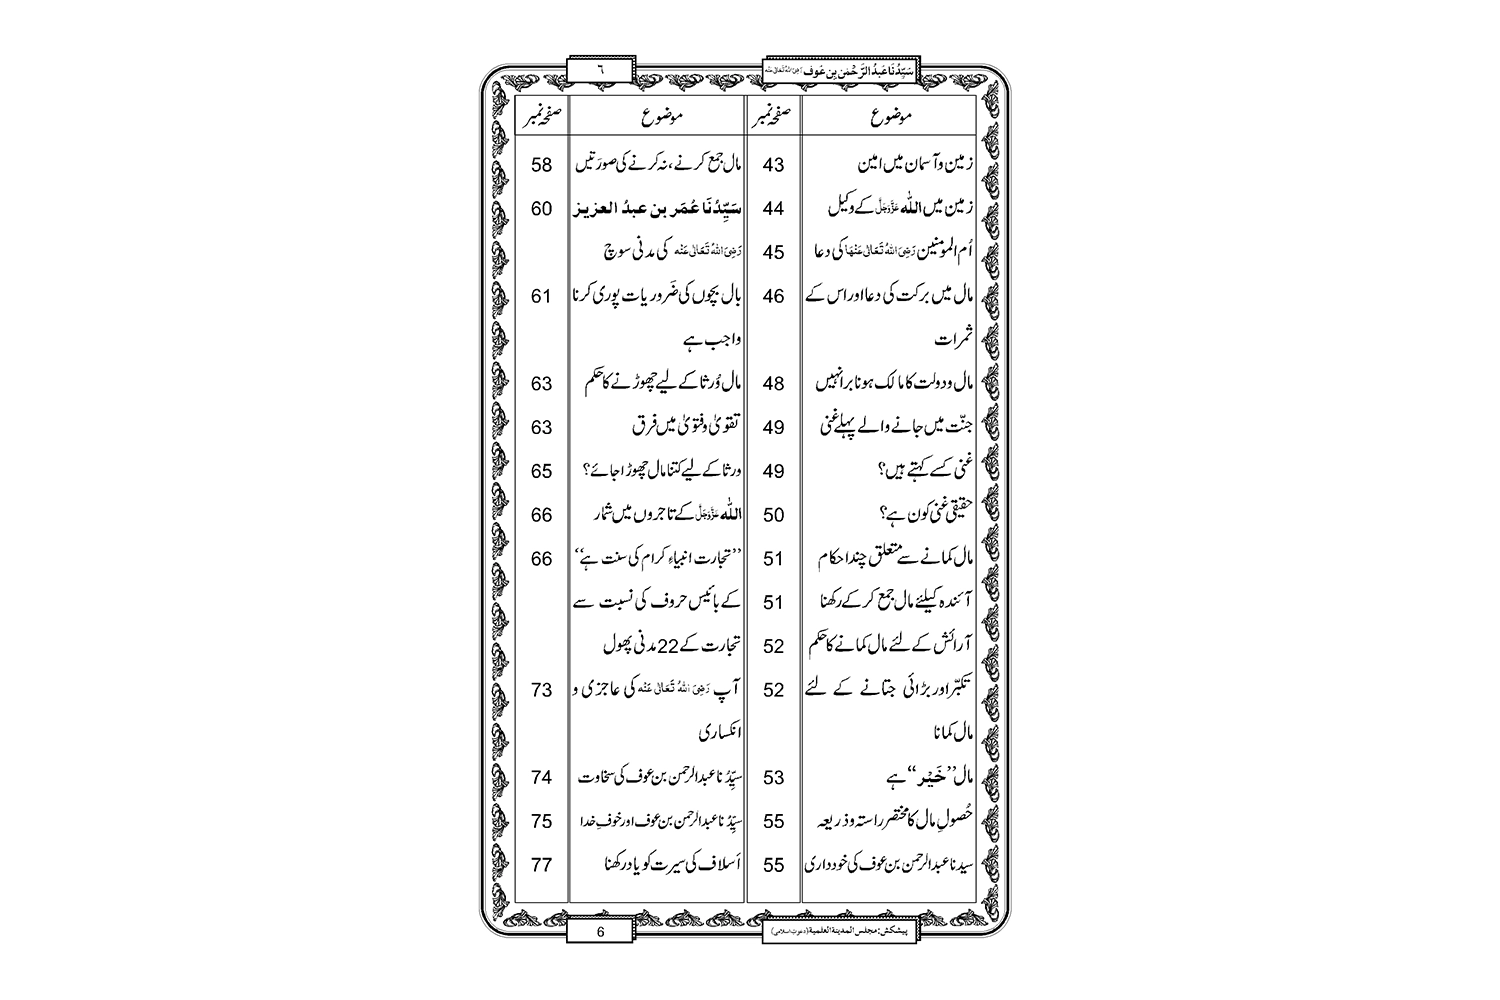 سَیِّدُنَا عَبدُ الرَّحْمٰن بن عَوف رَضِیَ اللہُ تَعَالٰی عَنْہ
٦
موضوع صفحہ نمبر
زمین و آسمان میں امین 43
زمین میں اللہ عَزَّوَجَلَّ کے وکیل 44
اُم المومنین رَضِیَ اللہُ تَعَالٰی عَنْھَا کی دعا 45
مال میں برکت کی دعا اور اس کے 46
ثمرات
مال و دولت کا مالک ہونا برا نہیں 48
جنّت میں جانے والے پہلے غنی 49
غنی کسے کہتے ہیں؟ 49
حقیقی غنی کون ہے؟ 50
مال کمانے سے متعلق چند احکام 51
آئندہ کیلئے مال جمع کر کے رکھنا 51
آرائش کے لئے مال کمانے کا حکم 52
تکبّر اور بڑائی جتانے کے لئے 52
مال کمانا
مال ’’خَیْر‘‘ ہے 53
حُصولِ مال کا مختصر راستہ و ذریعہ 55
سیدنا عبد الرحمن بن عوف کی خودداری 55
موضوع صفحہ نمبر
مال جمع کرنے، نہ کرنے کی صورَتیں 58
سَیِّدُنَا عُمَر بن عبدُ العزیز 60
رَضِیَ اللہُ تَعَالٰی عَنْہ کی مدنی سوچ
بال بچوں کی ضَروریات پوری کرنا 61
واجب ہے
مال وُرثا کے لیے چھوڑنے کا حکم 63
تقویٰ و فتویٰ میں فرق 63
ورثا کے لیے کتنا مال چھوڑا جائے؟ 65
اللہ عَزَّوَجَلَّ کے تاجروں میں شمار 66
’’تجارت انبیاءِ کرام کی سنت ہے‘‘ 66
کے بائیس حروف کی نسبت سے
تجارت کے 22 مدنی پھول
آپ رَضِیَ اللہُ تَعَالٰی عَنْہ کی عاجزی و 73
انکساری
سیِّدُنا عبد الرحمن بن عوف کی سخاوت 74
سیِّدُنا عبد الرحمن بن عوف اور خوفِ خدا 75
اَسلاف کی سیرت کو یاد رکھنا 77
پیشکش: مجلس المدینة العلمیة (دعوت اسلامی)
6